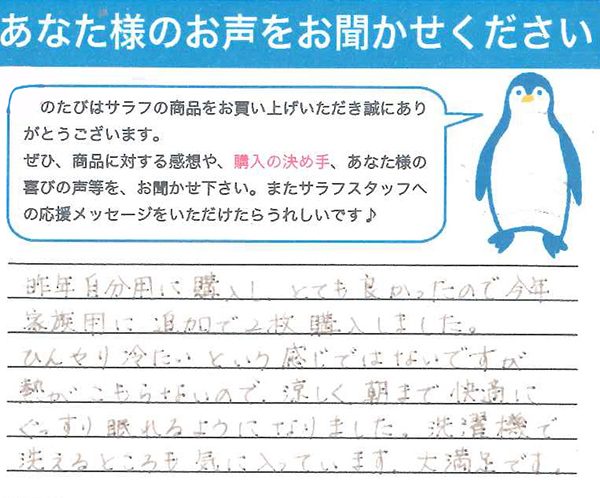 あなた様のお声をお聞かせください
のたびはサラフの商品をお買い上げいただき誠にあり
がとうございます。
ぜひ、商品に対する感想や、購入の決め手、あなた様の
喜びの声等を、お聞かせ下さい。またサラフスタッフへ
の応援メッセージをいただけたらうれしいです♪
昨年自分用に購入し、とても良かったので今年
家族用に追加で2枚購入しました。
ひんやり冷たいという感じではないですが
熱がこもらないので、涼しく朝まで快適に
ぐっすり眠れるようになりました。洗濯機で
洗えるところも気に入っています。大満足です。